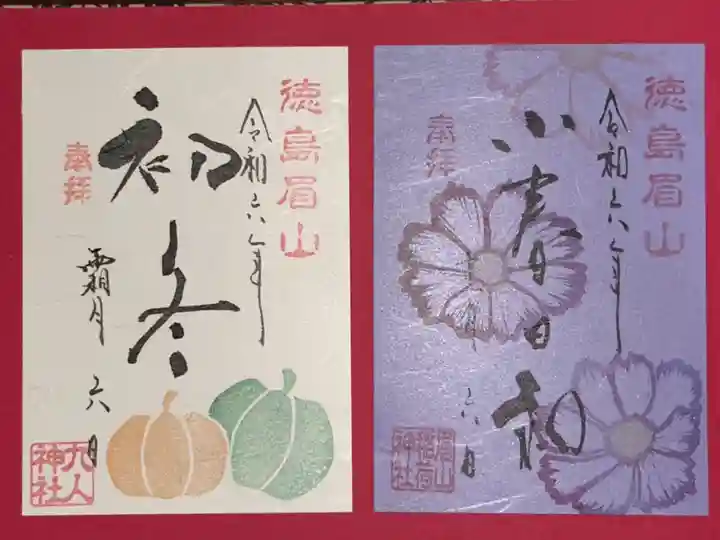 徳島眉山
令和六年
初冬
奉拝
霜月 六日
九人
神社
徳島眉山
令和六年
小春日和
奉拝
月 六日
眉山
稲荷
神社